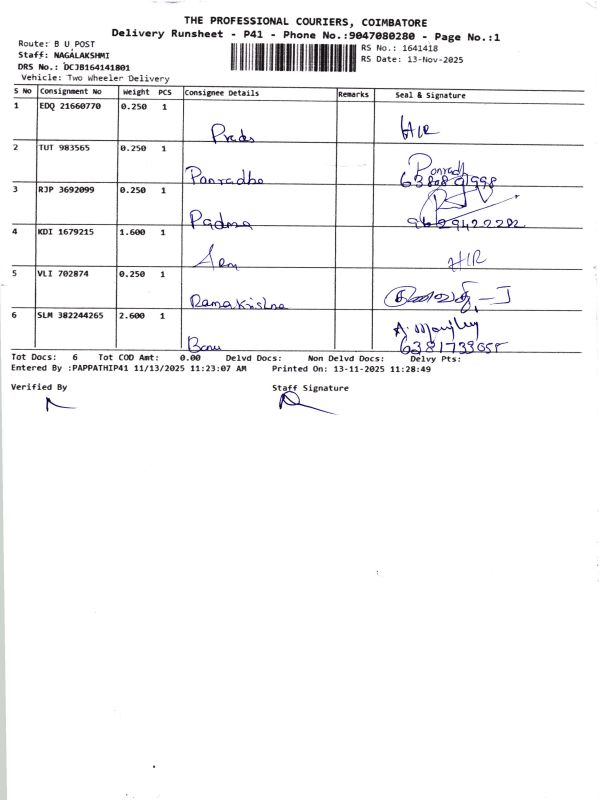 THE PROFESSIONAL COURIERS, COIMBATORE
Delivery Runsheet - P41 - Phone No.:9047080280 - Page No.:1
Route: B U POST
Staff: NAGALAKSHMI
DRS No.: DCJB164141801
Vehicle: Two Wheeler Delivery
RS No.: 1641418
RS Date: 13-Nov-2025
S No Consignment No Weight PCS Consignee Details Remarks Seal & Signature
1 EDQ 21660770 0.250 1
H/R
2 TUT 983565 0.250 1
Ponradha Ponradh
3 RJP 3692099 0.250 1
Padma 9629422282
4 KDI 1679215 1.600 1
H/R
5 VLI 702874 0.250 1
Ramakrishna
6 SLM 382244265 2.600 1
Banu
Tot Docs: 6 Tot COD Amt: 0.00 Delvd Docs: Non Delvd Docs: Delvy Pts:
Entered By :PAPPATHIP41 11/13/2025 11:23:07 AM Printed On: 13-11-2025 11:28:49
Verified By Staff Signature